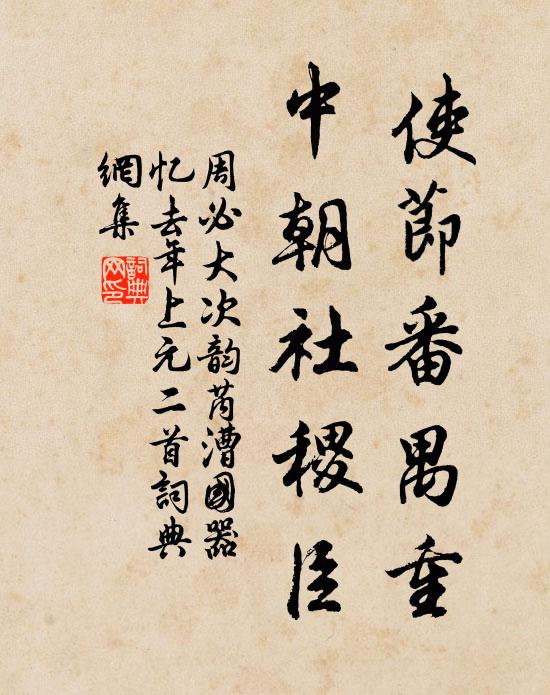 使節番禺重
中朝社稷臣
周必大次韵芮漕國器
忆去年上元二首詞典
網集
詞典網印